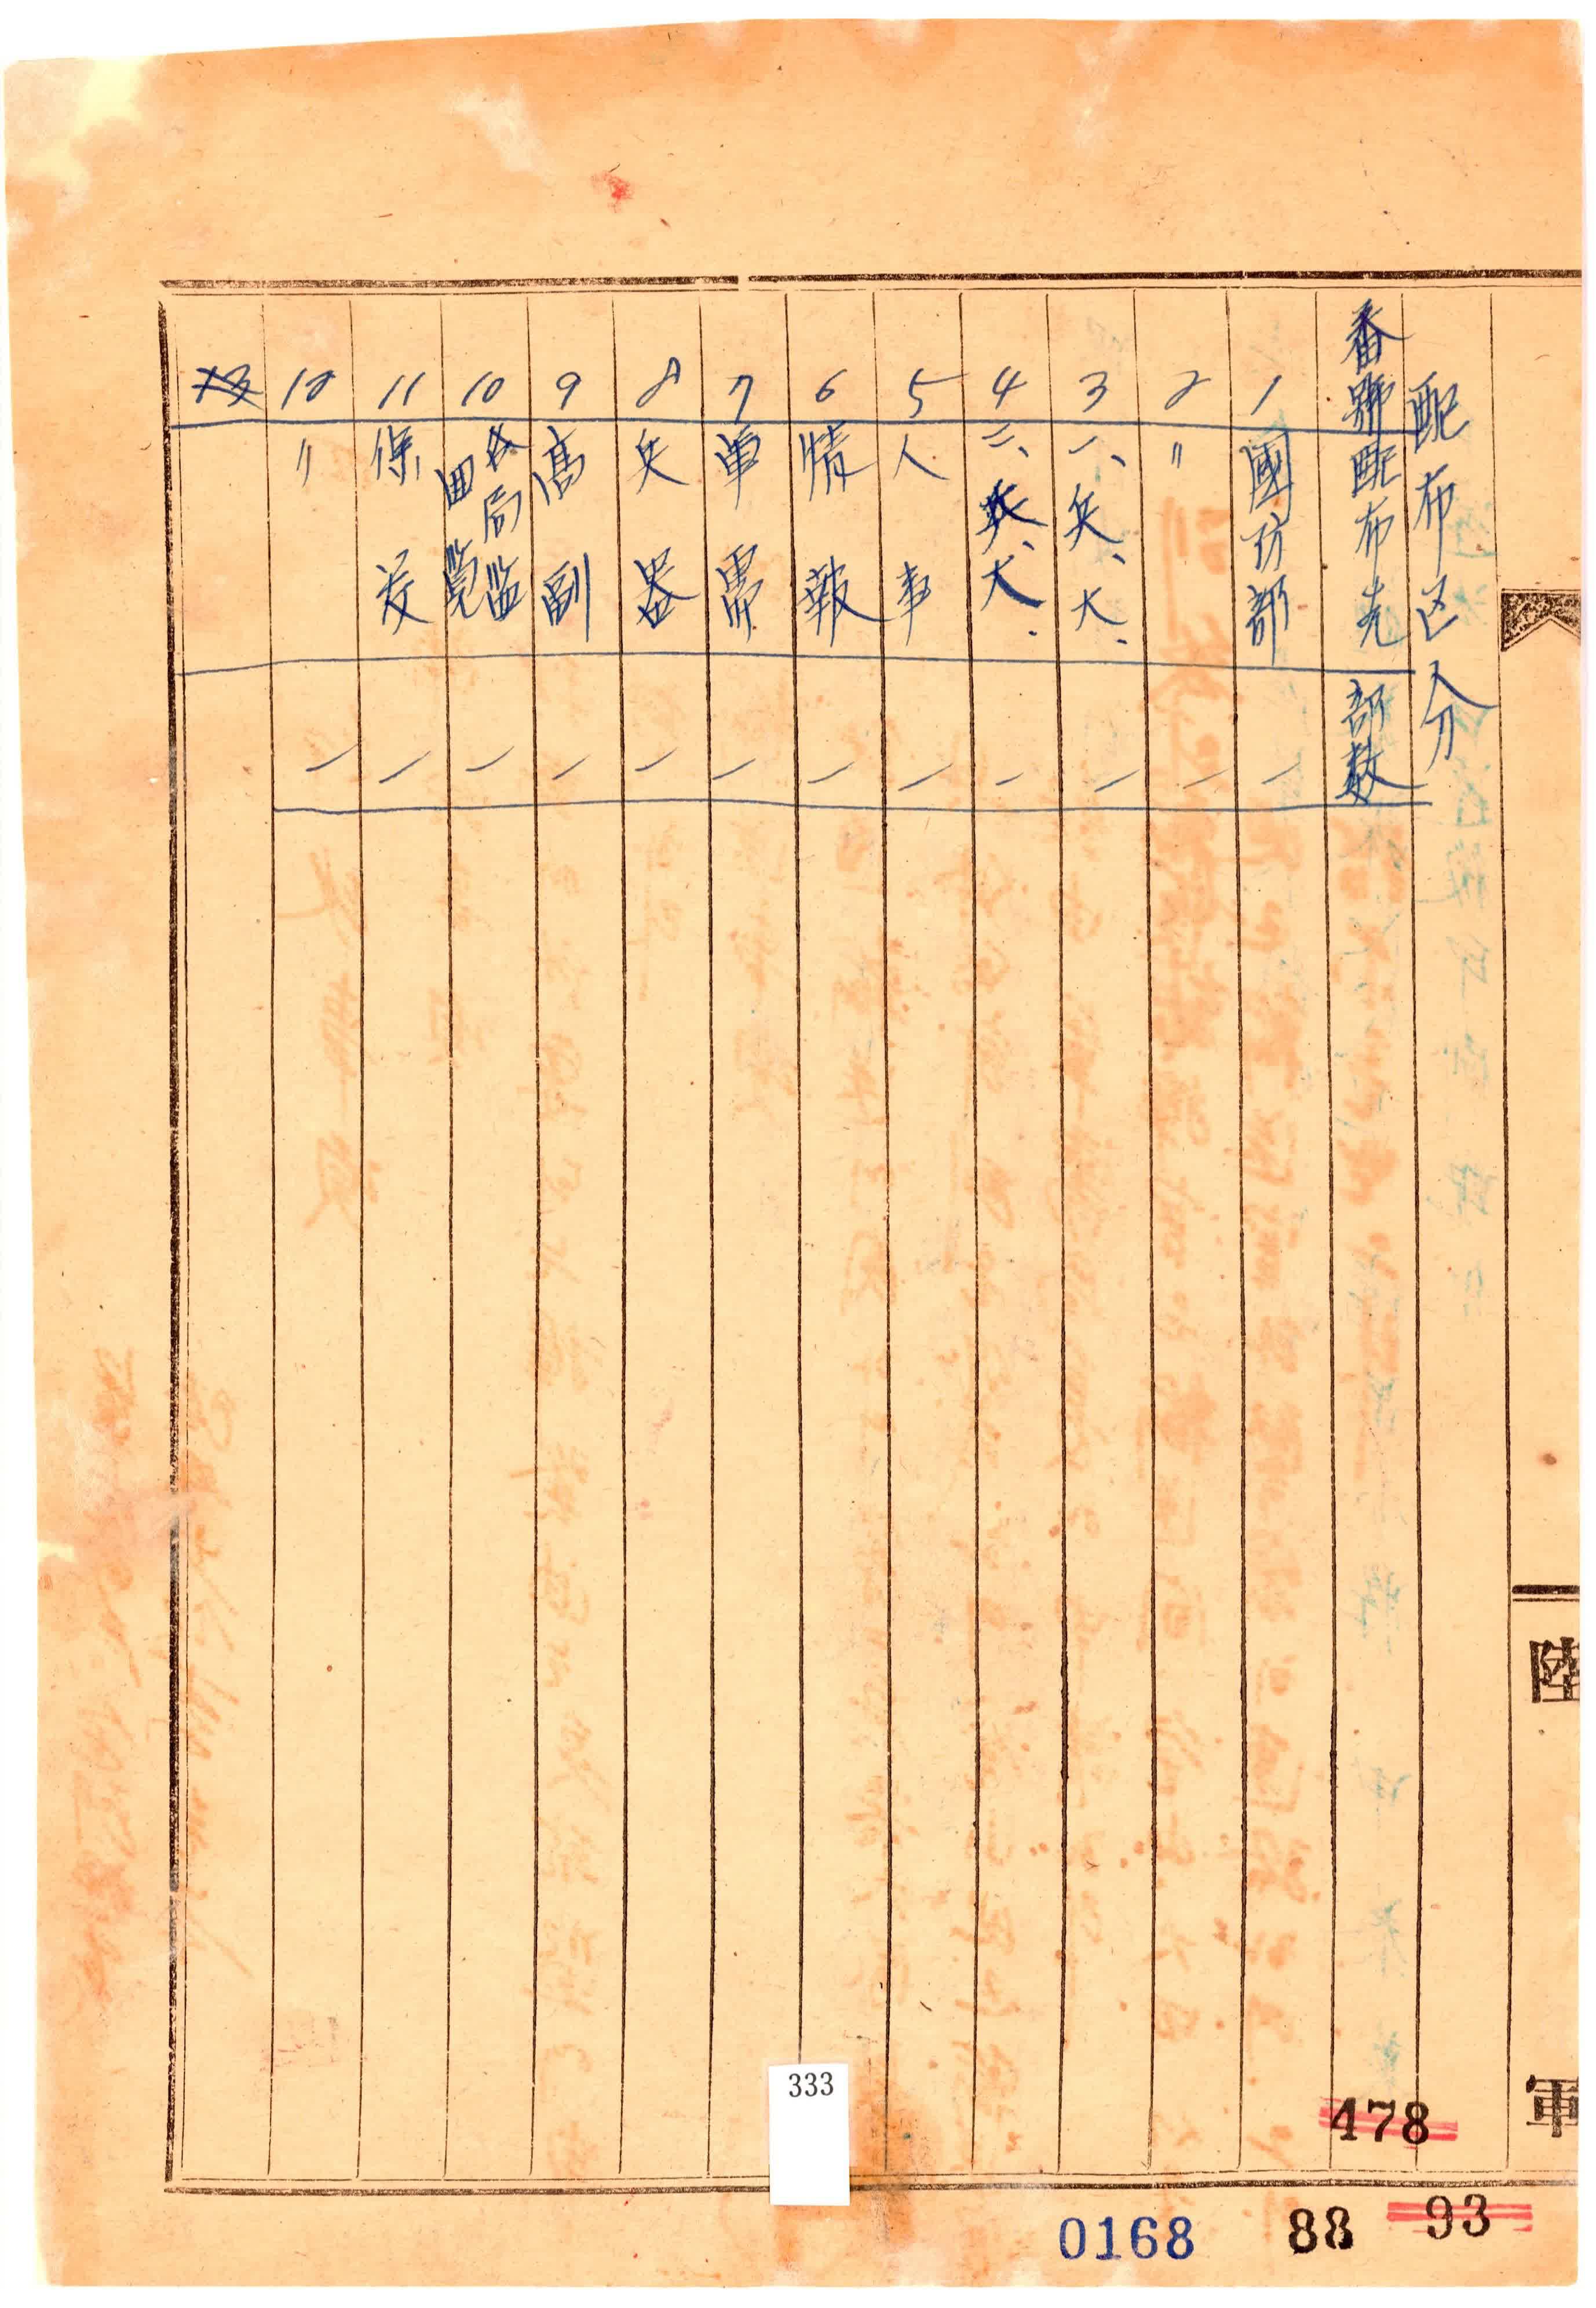 配布区分
番號 配布先 部数
1 國防部 一
2 〃 一
3 一、兵、大、 一
4 二、兵、大、 一
5 人事 一
6 情報 一
7 軍需 一
8 兵器 一
9 高副 一
10 各局監 回覽 一
11 保存 一
12 〃 一
陸
軍
333
478
0168 88 93